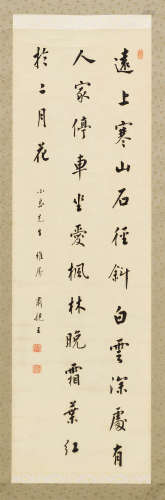 遠上寒山石徑斜白雲深處有
人家停車坐愛楓林晚霜葉紅
於二月花
先生